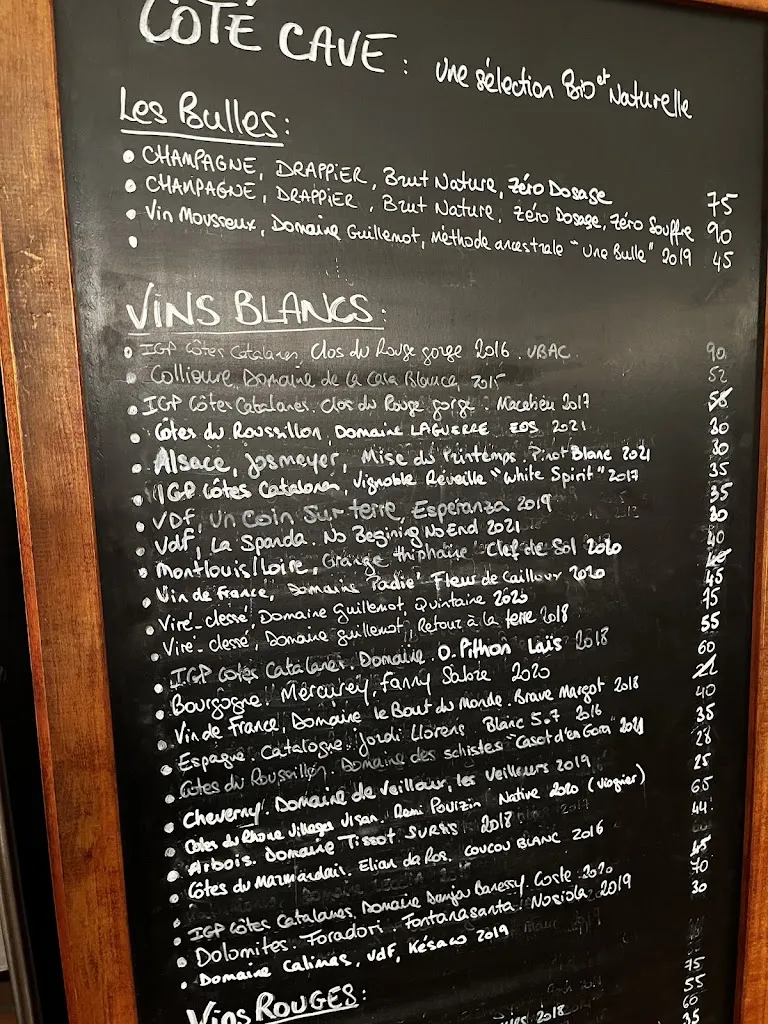 CÔTÉ CAVE : une sélection Bio et Naturelle
Les Bulles :
• CHAMPAGNE, DRAPPIER, Brut Nature, Zéro Dosage 75
• CHAMPAGNE, DRAPPIER, Brut Nature, Zéro Dosage, Zéro Souffre 90
• Vin Mousseux, Domaine Guillemot, méthode ancestrale "une Bulle" 2019 45
•
VINS BLANCS :
• IGP Côtes Catalanes, Clos du Rouge gorge 2016. UBAC. 90
• Collioure, Domaine de la Casa Blanca, 2015 52
• IGP Côtes Catalanes. Clos du Rouge gorge. Macabeu 2017 58
• Côtes du Roussillon, Domaine LAGUERRE EOS 2021 30
• Alsace, Josmeyer, Mise du Printemps. Pinot Blanc 2021 30
• IGP Côtes Catalanes, Vignoble Réveille "White Spirit" 2017 35
• VDF, Un Coin Sur terre, Esperanza 2019 35
• Vdf, La Spanda. No Begining No End 2021 30
• Montlouis/Loire, Grange thiphaine Clef de Sol 2020 40
• Vin de France, Domaine Fleur de Cailloux 2020
• Viré-clessé, Domaine Guillemot, Quintaine 2020 45
• Viré-clessé, Domaine guillemot, Retour à la terre 2018 75
• IGP cotes Catalanes. Domaine O. Pithon Laïs 2018 55
• Bourgogne. Mercurey. Fanny Sabre 2020 60
• Vin de France, Domaine le Bout du Monde. Brave Margot 2018
• Espagne. Catalogne. Jordi Llorens Blanc 5.7 2016 40
• Côtes du Roussillon. Domaine des schistes "Casot d'en Gora" 2021 35
• Cheverny. Domaine de Veilloux, les Veilleurs 2019 28
• Cotes du Rhone Villages Visan. Remi Pouizin Native 2020 (Viognier) 25
• Arbois. Domaine Tissot 2018 65
• Côtes du Marmandais. Elian da Ros. COUCOU BLANC 2016 44
•
• IGP Côtes Catalanes, Domaine Danjou Banessy. Coste 2020 45
• Dolomites. Foradori. Fontanasanta. Nosiola 2019 70
• Domaine Calimas, Vdf, Késaco 2019 30
Vins ROUGES :
75
55
2018 60
35